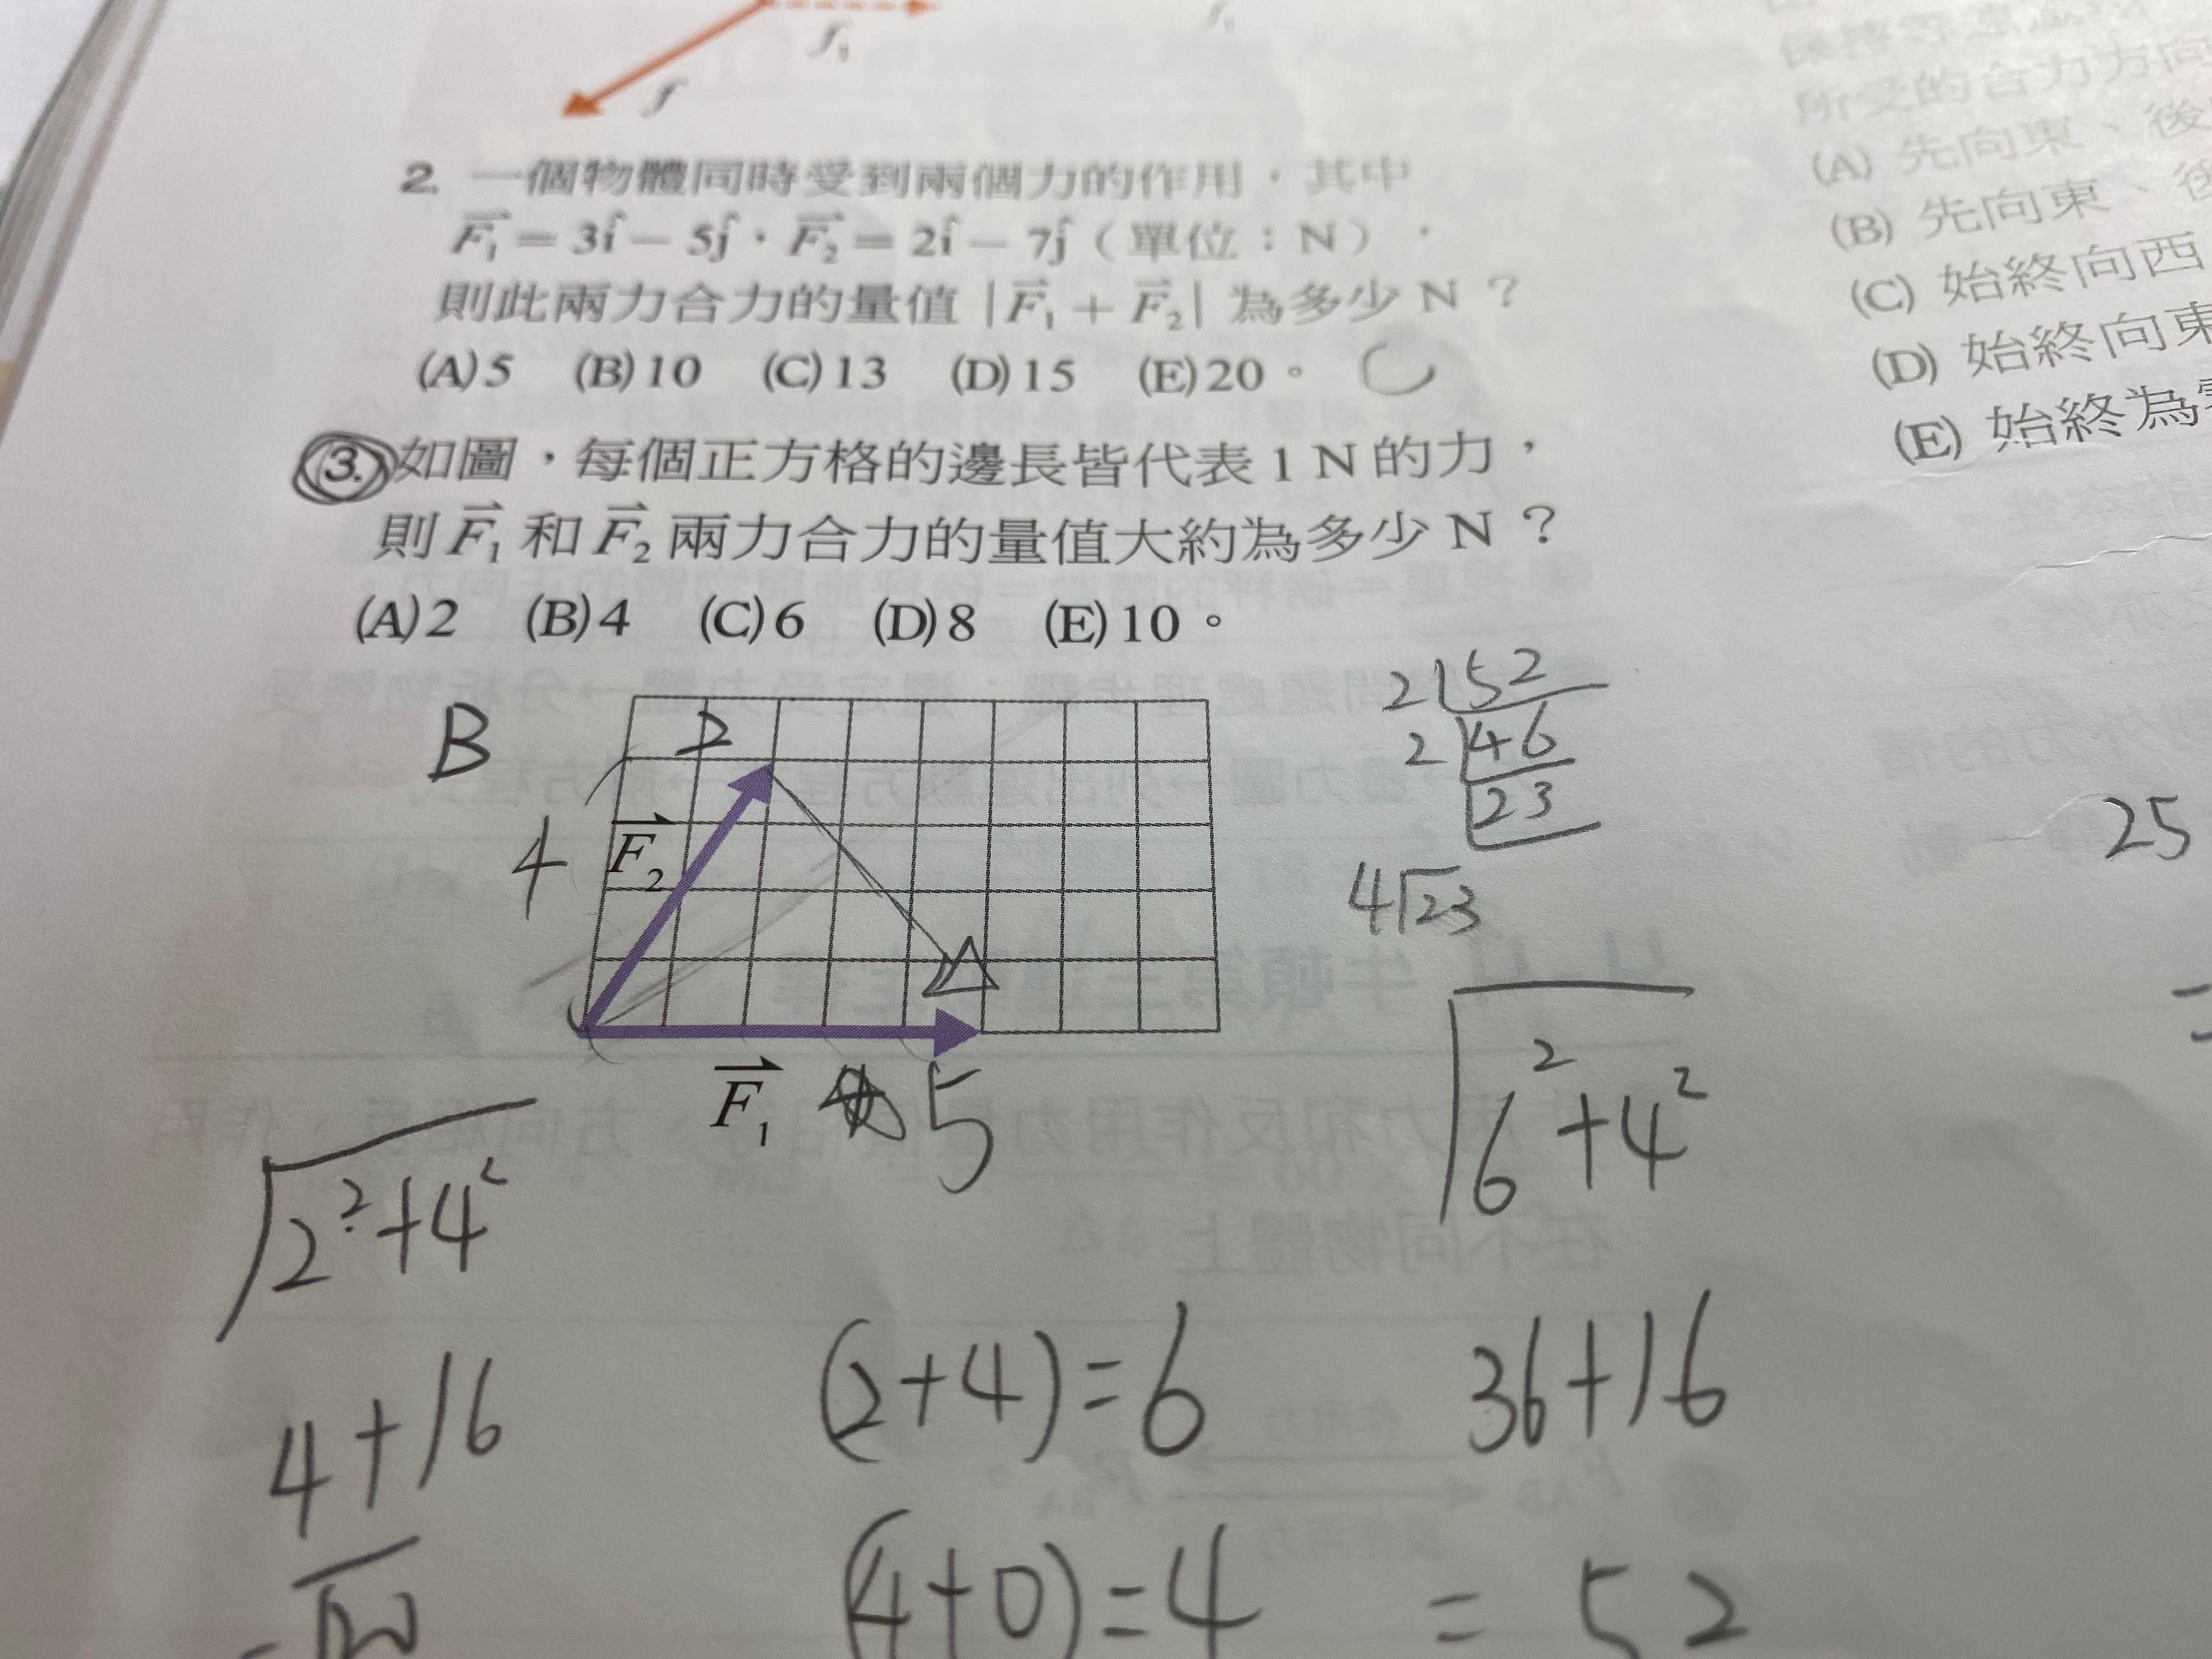 f₁
f₁
f
2. 一個物體同時受到兩個力的作用，其中
F₁ = 3î − 5ĵ，F₂ = 2î − 7ĵ（單位：N），
則此兩力合力的量值 |F₁ + F₂| 為多少 N？
(A) 5 (B) 10 (C) 13 (D) 15 (E) 20。 C
3. 如圖，每個正方格的邊長皆代表 1 N 的力，
則 F₁ 和 F₂ 兩力合力的量值大約為多少 N？
(A) 2 (B) 4 (C) 6 (D) 8 (E) 10。
B
2
4
F₂
F₁
5
2 52
2 46
23
4√23
√2²+4²
4+16
(2+4)=6
(4+0)=4
√6²+4²
36+16
= 52
25
所受的合力方向
(A) 先向東、後
(B) 先向東、後
(C) 始終向西
(D) 始終向東
(E) 始終為